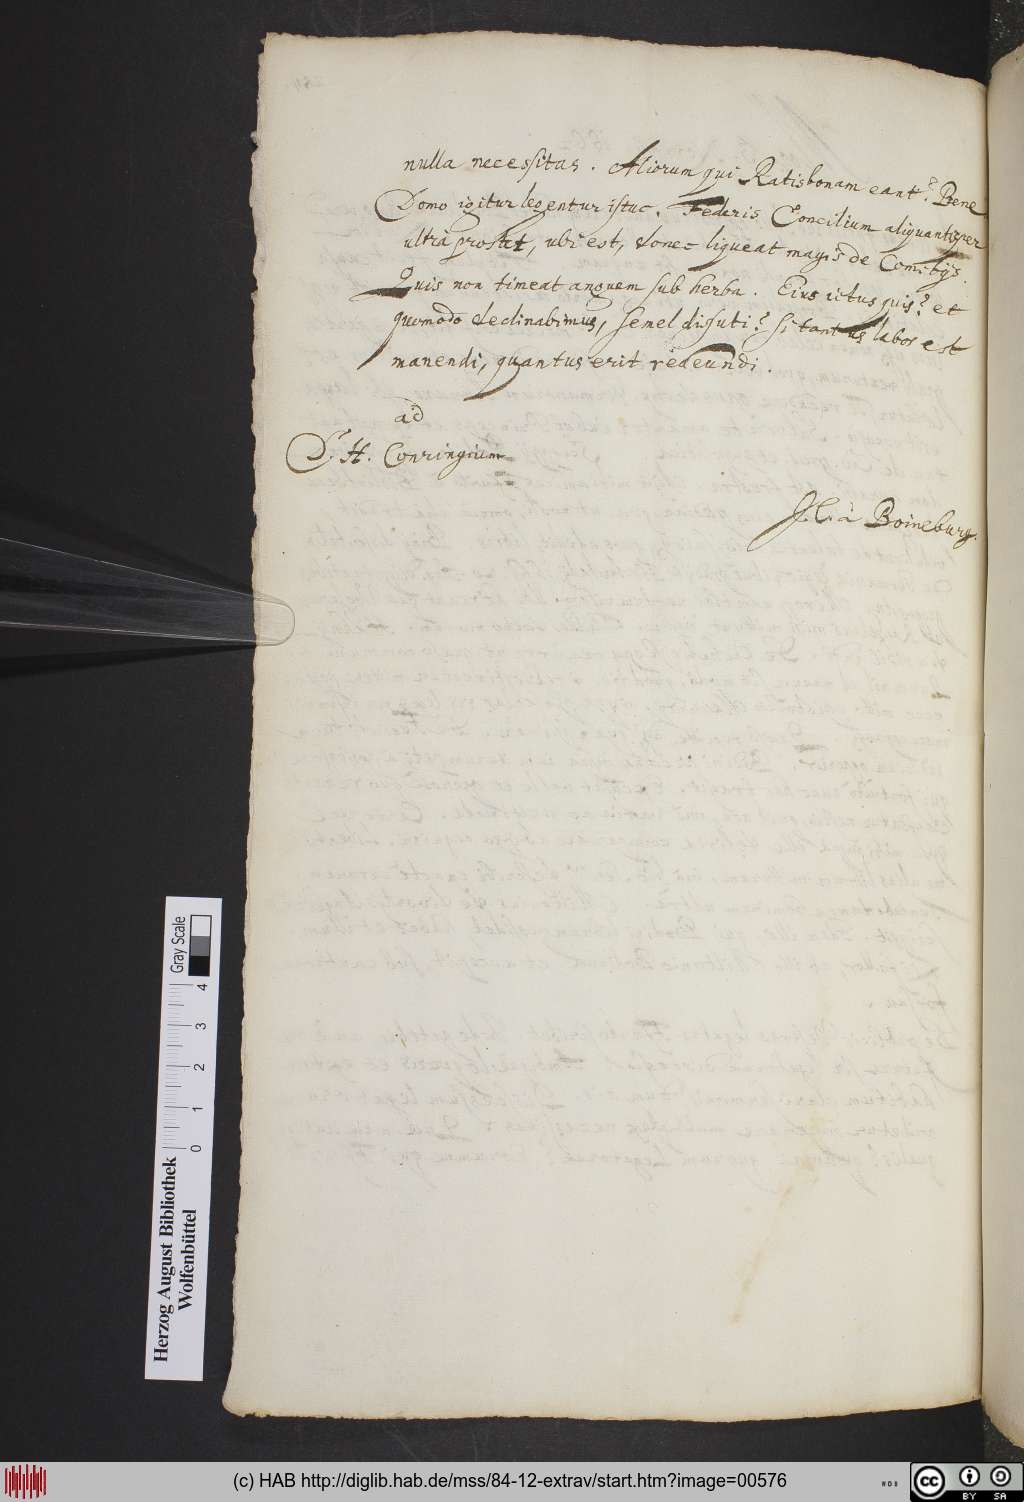 nulla necessitas. Aliorum qui Ratisbonam eant? Bene
Domo igitur legentur istuc. Federis Concilium aliquantisper
ultrà prostet, ubi est, donec liqueat magis de Comitijs.
Quis non timeat anguem sub herba. Eius ictus quis? et
quomodo declinabimus, semel disputi? Si tantus labor est
manendi, quantus erit redeundi.
ad
D. H. Conringium
J. C. à Boineburg.
Herzog August Bibliothek
Wolfenbüttel
0 1 2 3 4
Gray Scale
(c) HAB http://diglib.hab.de/mss/84-12-extrav/start.htm?image=00576
cc BY SA